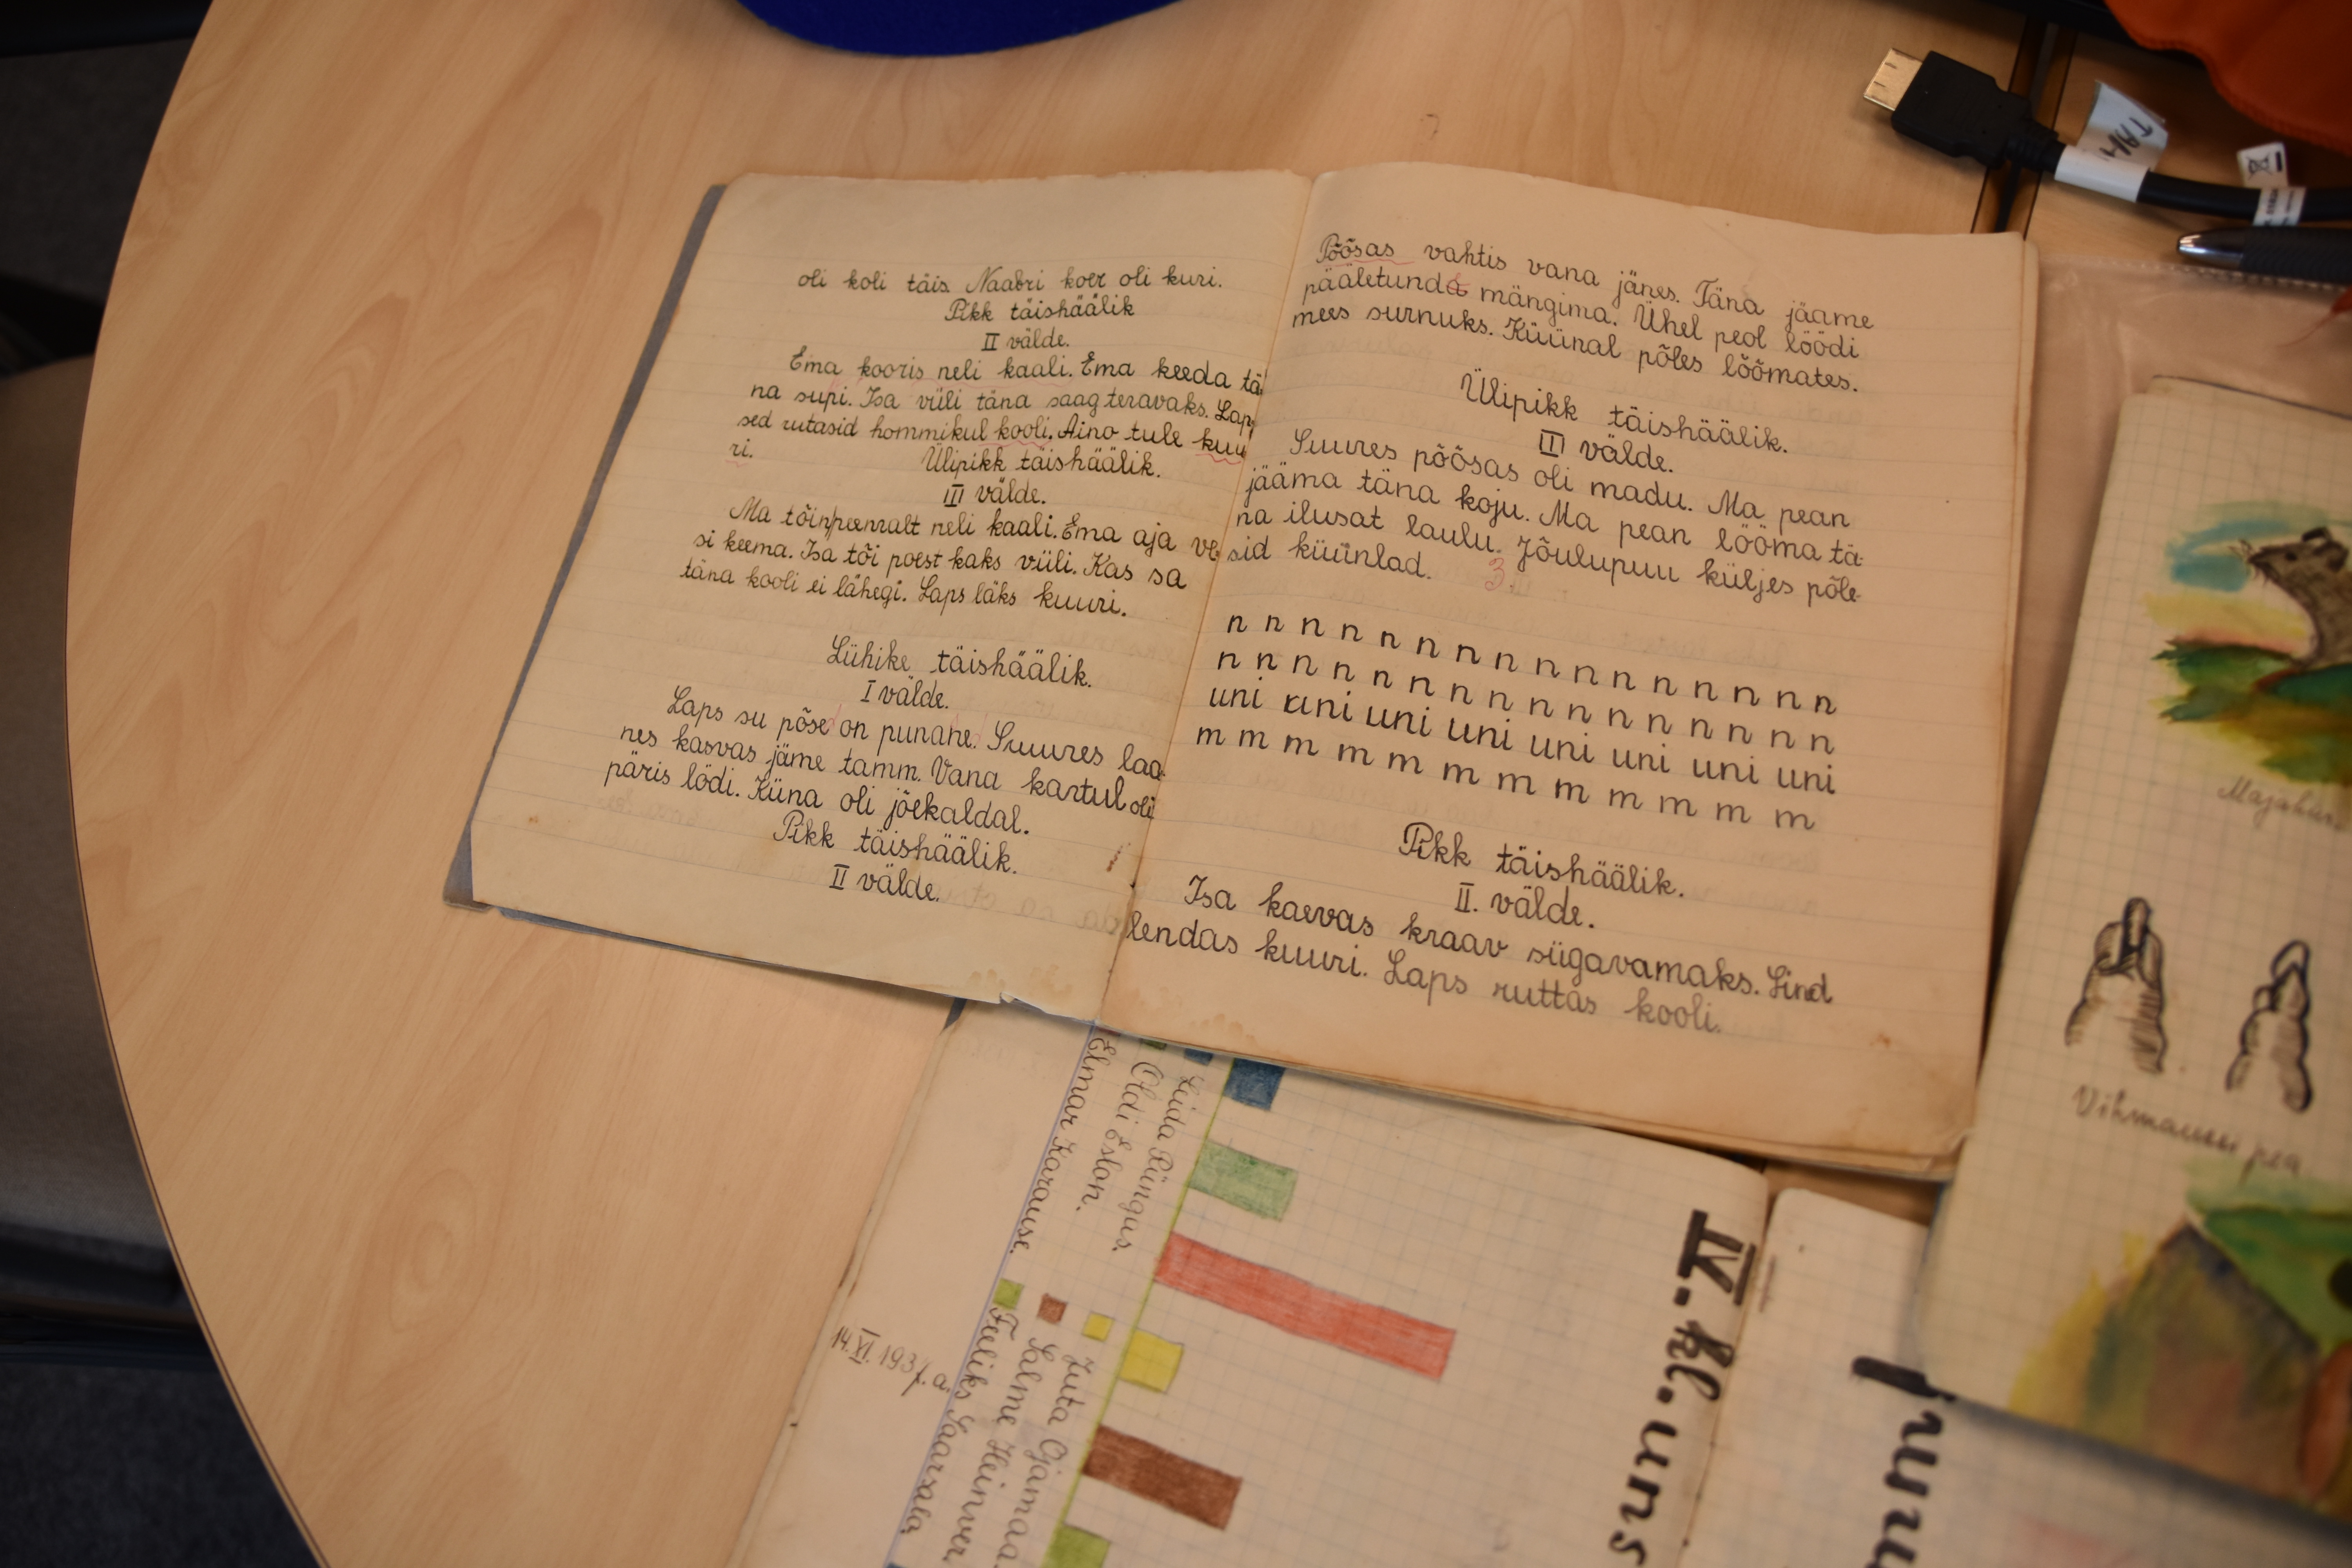 oli koli täis. Naabri koer oli kuri.
Pikk täishäälik
II välde.
Ema kooris neli kaali. Ema keeda tä
na supi. Isa viili täna saag teravaks. Lap
sed rutasid hommikul kooli. Aino tule kuu
ri.
Ülipikk täishäälik.
III välde.
Ma tõin peenralt neli kaali. Ema aja ve
si keema. Isa tõi poest kaks viili. Kas sa
täna kooli ei lähegi. Laps läks kuuri.
Lühike täishäälik.
I välde.
Laps su põse on punane. Suures laa
nes kasvas jäme tamm. Vana kartul oli
päris lödi. Küna oli jõekaldal.
Pikk täishäälik.
II välde.
Põõsas vahtis vana jänes. Täna jääme
pääletunda mängima. Ühel peol löödi
mees surnuks. Küünal põles lõõmates.
Ülipikk täishäälik.
III välde.
Suures põõsas oli madu. Ma pean
jääma täna koju. Ma pean lööma tä-
na ilusat laulu. Jõulupuu küljes põle-
sid küünlad.
n n n n n n n n n n n n n n n n
n n n n n n n n n n n n n n n n
uni uni uni uni uni uni uni uni
m m m m m m m m m m m m
Pikk täishäälik.
II. välde.
Isa kaevas kraav sügavamaks. Lind
lendas kuuri. Laps ruttas kooli.
Leida Püngus.
Oldi Eslon.
Elmar Karause.
Juta Ojamaa.
Salme Heinver
Feeliks Saarsala
14. XI. 1937. a.
IV. kl. uns
Vihmaussi pea
TAH